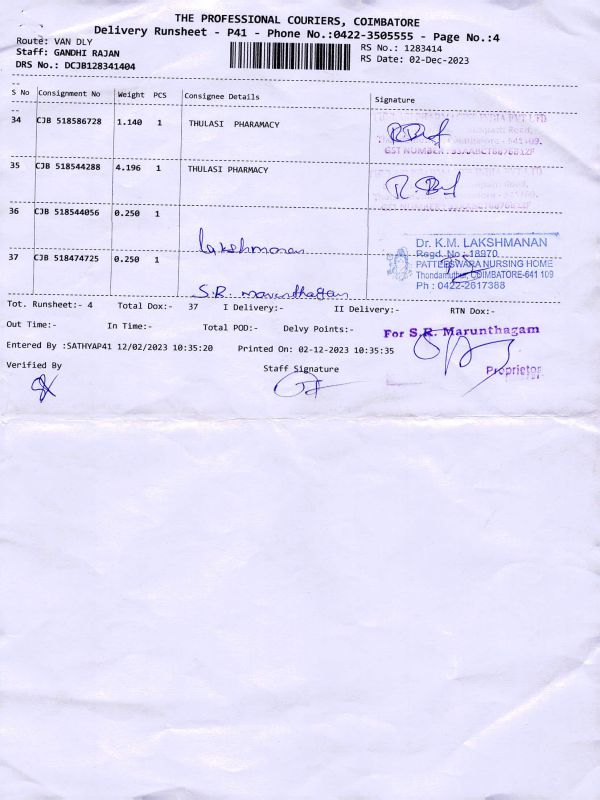 THE PROFESSIONAL COURIERS, COIMBATORE
Delivery Runsheet - P41 - Phone No.:0422-3505555 - Page No.:4
Route: VAN DLY
RS No.: 1283414
Staff: GANDHI RAJAN
RS Date: 02-Dec-2023
DRS No.: DCJB128341404
S No Consignment No Weight PCS Consignee Details Signature
34 CJB 518586728 1.140 1 THULASI PHARAMACY
GST NUMBER :
35 CJB 518544288 4.196 1 THULASI PHARMACY
36 CJB 518544056 0.250 1
Lakshmanan
Dr. K.M. LAKSHMANAN
Regd. No : 18970
PATTEESWARA NURSING HOME
Thondamuthur, COIMBATORE-641 109
Ph : 0422-2617388
37 CJB 518474725 0.250 1
S.R. marunthagam
Tot. Runsheet:- 4 Total Dox:- 37 I Delivery:- II Delivery:- RTN Dox:-
Out Time:- In Time:- Total POD:- Delvy Points:-
For S.R. Marunthagam
Entered By :SATHYAP41 12/02/2023 10:35:20 Printed On: 02-12-2023 10:35:35
Verified By Staff Signature Proprietor